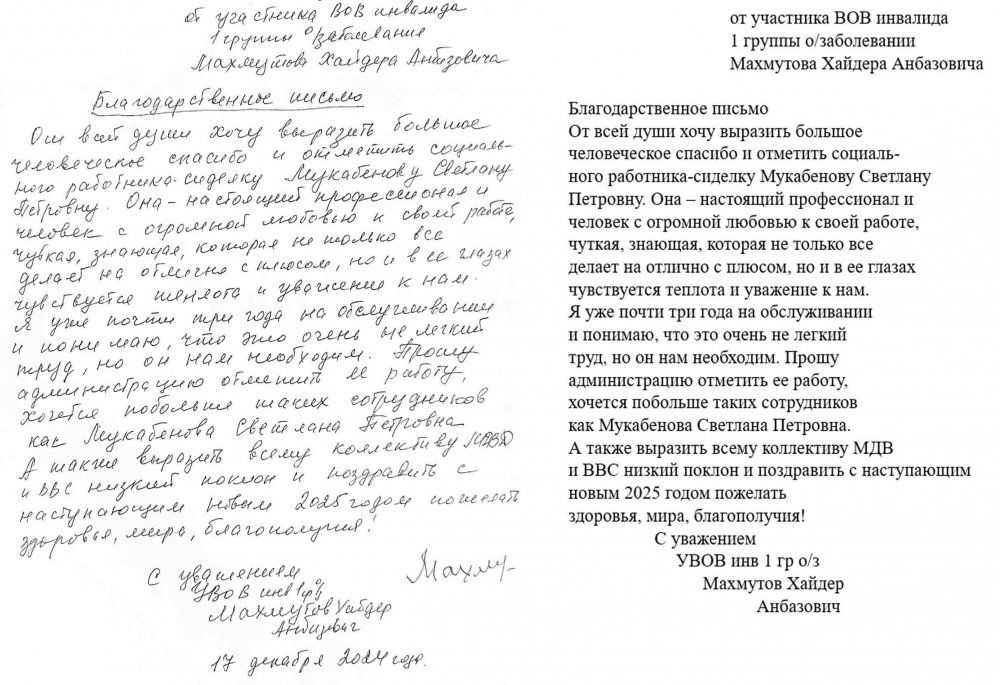 от участника ВОВ инвалида
1 группы о/заболевания
Махмутова Хайдера Анбазовича
Благодарственное письмо
От всей души хочу выразить большое
человеческое спасибо и отметить социаль-
ного работника-сиделку Мукабенову Светлану
Петровну. Она – настоящий профессионал и
человек с огромной любовью к своей работе,
чуткая, знающая, которая не только все
делает на отлично с плюсом, но и в ее глазах
чувствуется теплота и уважение к нам.
Я уже почти три года на обслуживании
и понимаю, что это очень не легкий
труд, но он нам необходим. Прошу
администрацию отметить ее работу,
хочется побольше таких сотрудников
как Мукабенова Светлана Петровна
А также выразить всему коллективу
и ВВС низкий поклон и поздравить с
наступающим новым 2025 годом пожелать
здоровья, мира, благополучия!
С уважением
Махму
УВОВ инв 1 гр
Махмутов Хайдер
Анбазович
17 декабря 2024 года.
от участника ВОВ инвалида
1 группы о/заболевании
Махмутова Хайдера Анбазовича
Благодарственное письмо
От всей души хочу выразить большое
человеческое спасибо и отметить социаль-
ного работника-сиделку Мукабенову Светлану
Петровну. Она – настоящий профессионал и
человек с огромной любовью к своей работе,
чуткая, знающая, которая не только все
делает на отлично с плюсом, но и в ее глазах
чувствуется теплота и уважение к нам.
Я уже почти три года на обслуживании
и понимаю, что это очень не легкий
труд, но он нам необходим. Прошу
администрацию отметить ее работу,
хочется побольше таких сотрудников
как Мукабенова Светлана Петровна.
А также выразить всему коллективу МДВ
и ВВС низкий поклон и поздравить с наступающим
новым 2025 годом пожелать
здоровья, мира, благополучия!
С уважением
УВОВ инв 1 гр о/з
Махмутов Хайдер
Анбазович